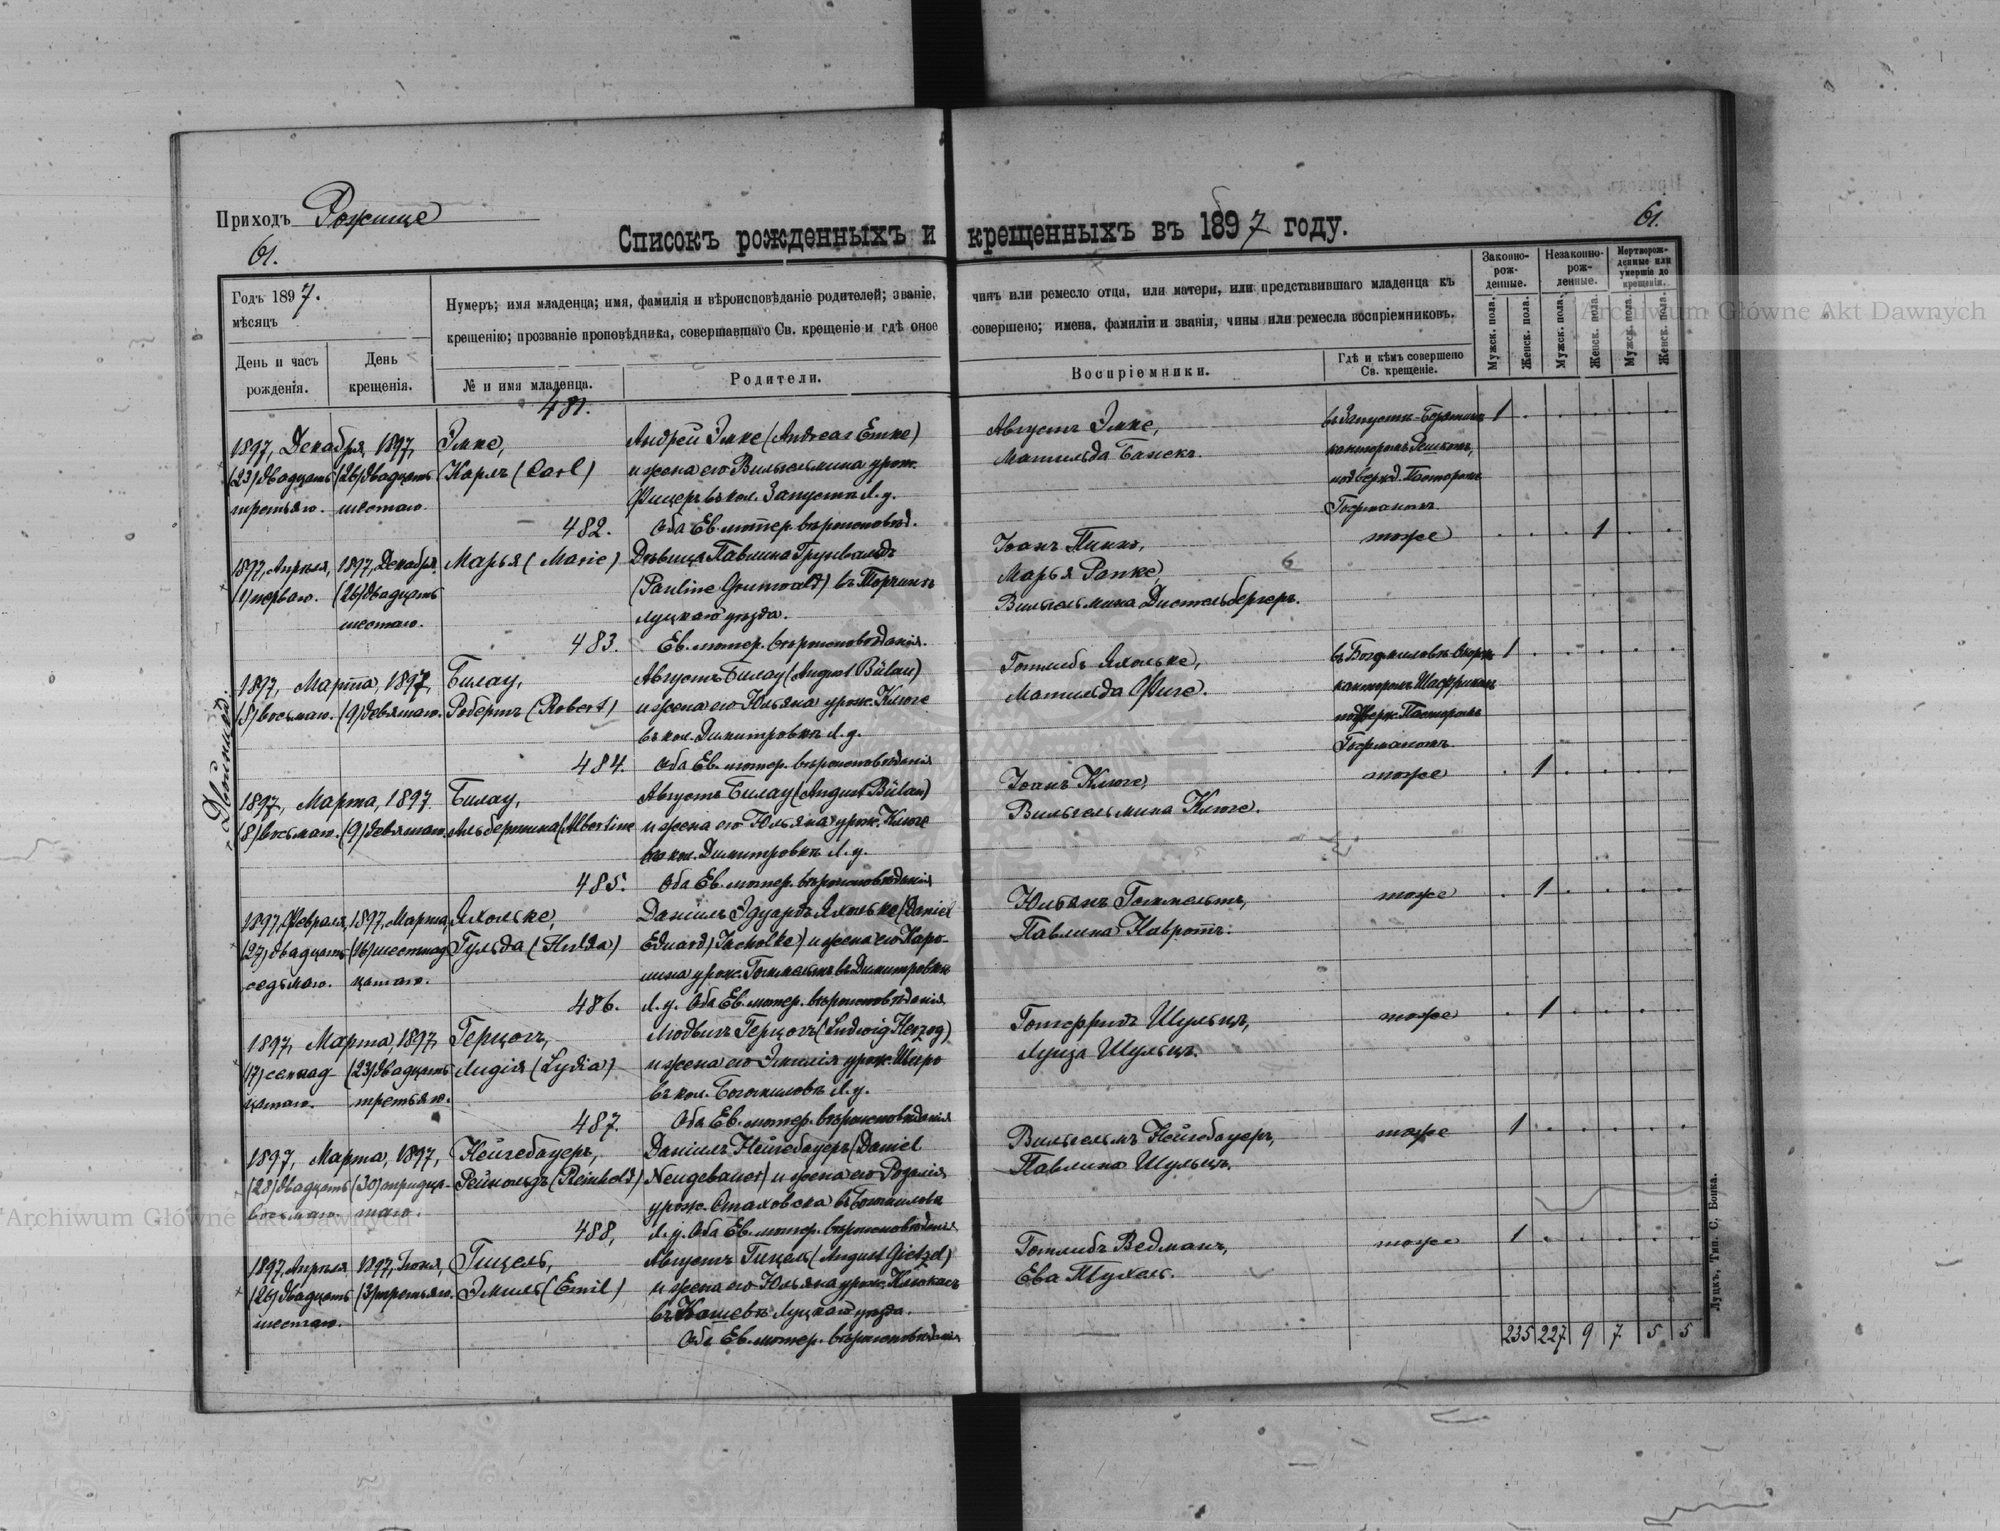 Приходъ Рожище
61.
61.
Списокъ рожденныхъ и крещенныхъ въ 1897 году.
Годъ 1897.
мѣсяцъ
День и часъ рожденія.
День крещенія.
Нумеръ; имя младенца; имя, фамилія и вѣроисповѣданіе родителей; званіе, чинъ или ремесло отца, или матери, или представившаго младенца къ
крещенію; прозваніе проповѣдника, совершавшаго Св. крещеніе и гдѣ оное совершено; имена, фамиліи и званія, чины или ремесла воспріемниковъ.
№ и имя младенца.
Родители.
Воспріемники.
Гдѣ и кѣмъ совершено Св. крещеніе.
Законно-рож-денные.
Незаконно-рож-денные.
Мертворож-денные или умершіе до крещенія.
Мужск. пола.
Женск. пола.
Мужск. пола.
Женск. пола.
Мужск. пола.
Женск. пола.
481.
1897, Декабря, 1897, Эмке, Андрей Эмке (Andreas Emke) Августъ Эмке, 1
(23) двадцать (26) двадцать Карлъ (Carl) и жена его Вильгельмина урож. Матильда
третьяго. шестаго. въ кол. Запуста Л. у. подвержд. Пасторомъ
482. Оба Ев. лютер. вѣроисповѣд. Госрманомъ
1897, Апрѣля, 1897, Декабря, Марья (Marie) Дѣвица Павлина Грунвальдъ Іоанъ тоже 1
(1) перваго. (26) двадцать (Pauline Grunwald) въ Торчинѣ Марья Ранке, 6
шестаго. луцкаго уѣзда. Вильгельмина Дистельбергеръ.
483. Ев. лютер. вѣроисповѣданія.
Двойники.
1897, Марта, 1897, Билау, Августъ Билау (August Bülau) Готлибъ Яхольке, 1
(8) восьмаго. (9) девятаго. Робертъ (Robert) и жена его Юльяна урож. Клюге Матильда Фиге. канторомъ
въ кол. Димитровкѣ Л. у. Пасторомъ
484. Оба Ев. лютер. вѣроисповѣданія Госрманомъ.
1897, Марта, 1897 Билау, Августъ Билау (August Bülau) Іоанъ Клюге, тоже 1
(8) восьмаго. (9) девятаго. Альбертина (Albertine и жена его Юльяна урож. Клюге Вильгельмина Клюге.
въ кол. Димитровкѣ Л. у.
485. Оба Ев. лютер. вѣроисповѣданія
1897, Февраля, 1897, Марта, Яхольке, Даніилъ Эдуардъ Яхольке (Daniel Юльянъ тоже 1
(27) двадцать (16) шестнад Гульда (Hulda) Eduard Jacholke) и жена его Каро- Павлина Навротъ.
седьмаго. цатаго. лина урож. въ Димитровкѣ
486. Л. у. Оба Ев. лютер. вѣроисповѣданія
1897, Марта, 1897, Герцогъ, Людвигъ Герцогъ (Ludwig Herzog) Готфридъ Шульцъ, тоже 1
(17) семнад- (23) двадцать Лидія (Lydia) и жена его Эмилія урож. Луиза Шульцъ.
цатаго. третьяго. въ кол. Богомиловѣ Л. у.
487. Оба Ев. лютер. вѣроисповѣданія
1897, Марта, 1897, Нейгебауеръ, Даніилъ Нейгебауеръ (Daniel Вильгельмъ Нейгебауеръ, тоже 1
(28) двадцать (30) тридца- Рейнольдъ (Reinhold) Neugebauer) и жена его Розалія Павлина Шульцъ.
восьмаго. таго. урож. въ Богомиловѣ
488, Л. у. Оба Ев. лютер. вѣроисповѣданія
1897, Апрѣля, 1897, Іюня, Гицель, Августъ Гицель (August Gietzel) Готлибъ Ведманъ, тоже 1
(26) двадцать (3) третьяго. Эмиль (Emil) и жена его Юльяна урож. Ева
шестаго. въ Кошевѣ Луцкаго уѣзда.
Оба Ев. лютер. вѣроисповѣданія
235 227 9 7 5 5
Луцкъ, Тип. С. Бонка.
Archiwum Główne Akt Dawnych
Archiwum Główne Akt Dawnych